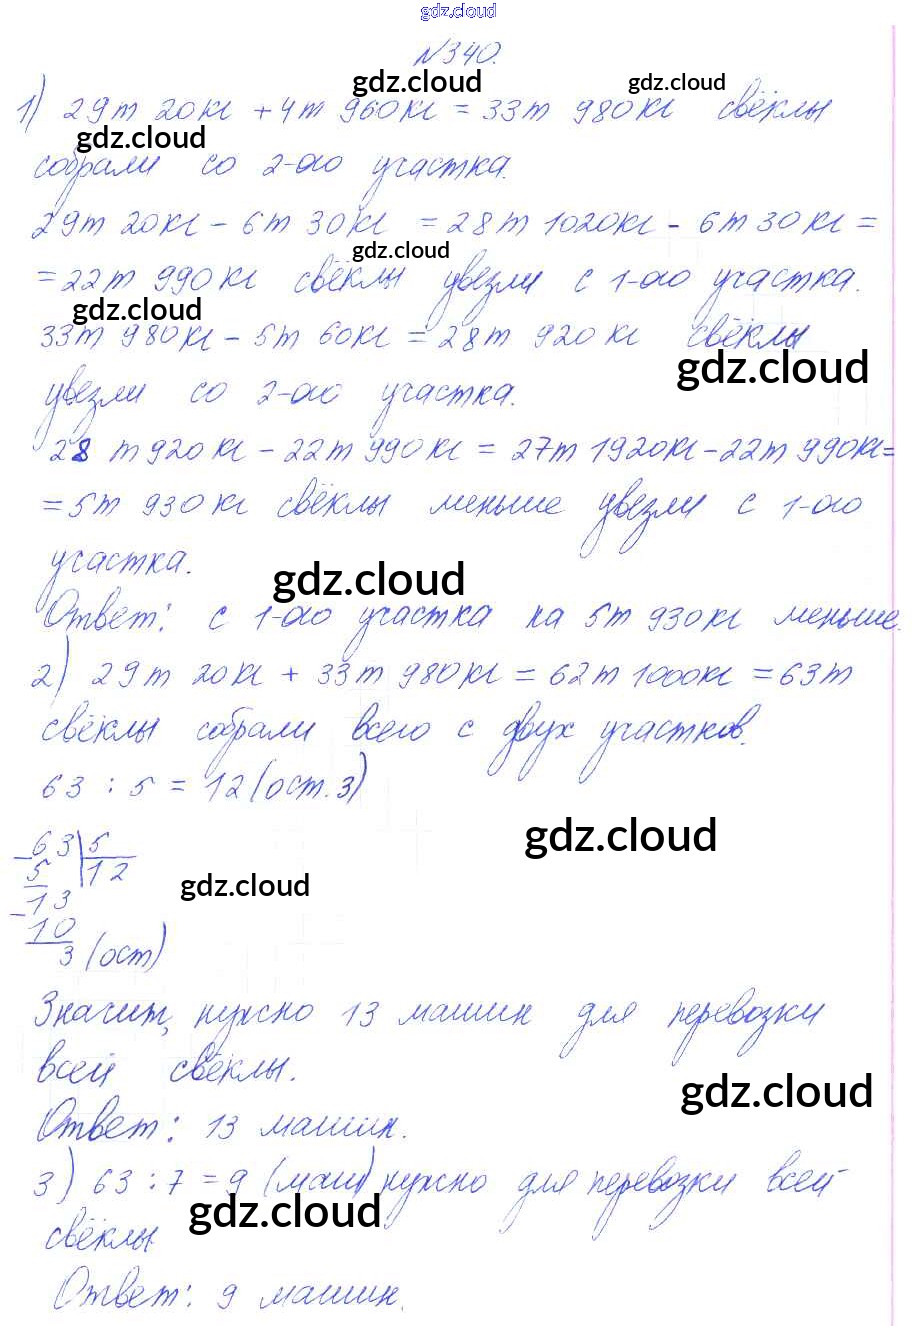 gdz.cloud
N340.
gdz.cloud gdz.cloud
1) 29т 20кг + 4т 960кг = 33т 980кг свёклы
gdz.cloud
собрали со 2-го участка.
29т 20кг - 6т 30кг = 28т 1020кг - 6т 30кг =
gdz.cloud
= 22т 990кг свёклы увезли с 1-го участка.
gdz.cloud
33т 980кг - 5т 60кг = 28т 920кг свёклы
gdz.cloud
увезли со 2-го участка.
28 т 920кг - 22т 990кг = 27т 1920кг - 22т 990кг =
= 5т 930кг свёклы меньше увезли с 1-го
участка.
gdz.cloud
Ответ: с 1-го участка на 5т 930кг меньше.
2) 29т 20кг + 33т 980кг = 62т 1000кг = 63т
свёклы собрали всего с двух участков.
63 : 5 = 12 (ост. 3)
gdz.cloud
63 5
5 12
gdz.cloud
13
10
3 (ост)
Значит, нужно 13 машин для перевозки
всей свёклы.
gdz.cloud
Ответ: 13 машин.
3) 63 : 7 = 9 (маш) нужно для перевозки всей
gdz.cloud
свёклы
Ответ: 9 машин.